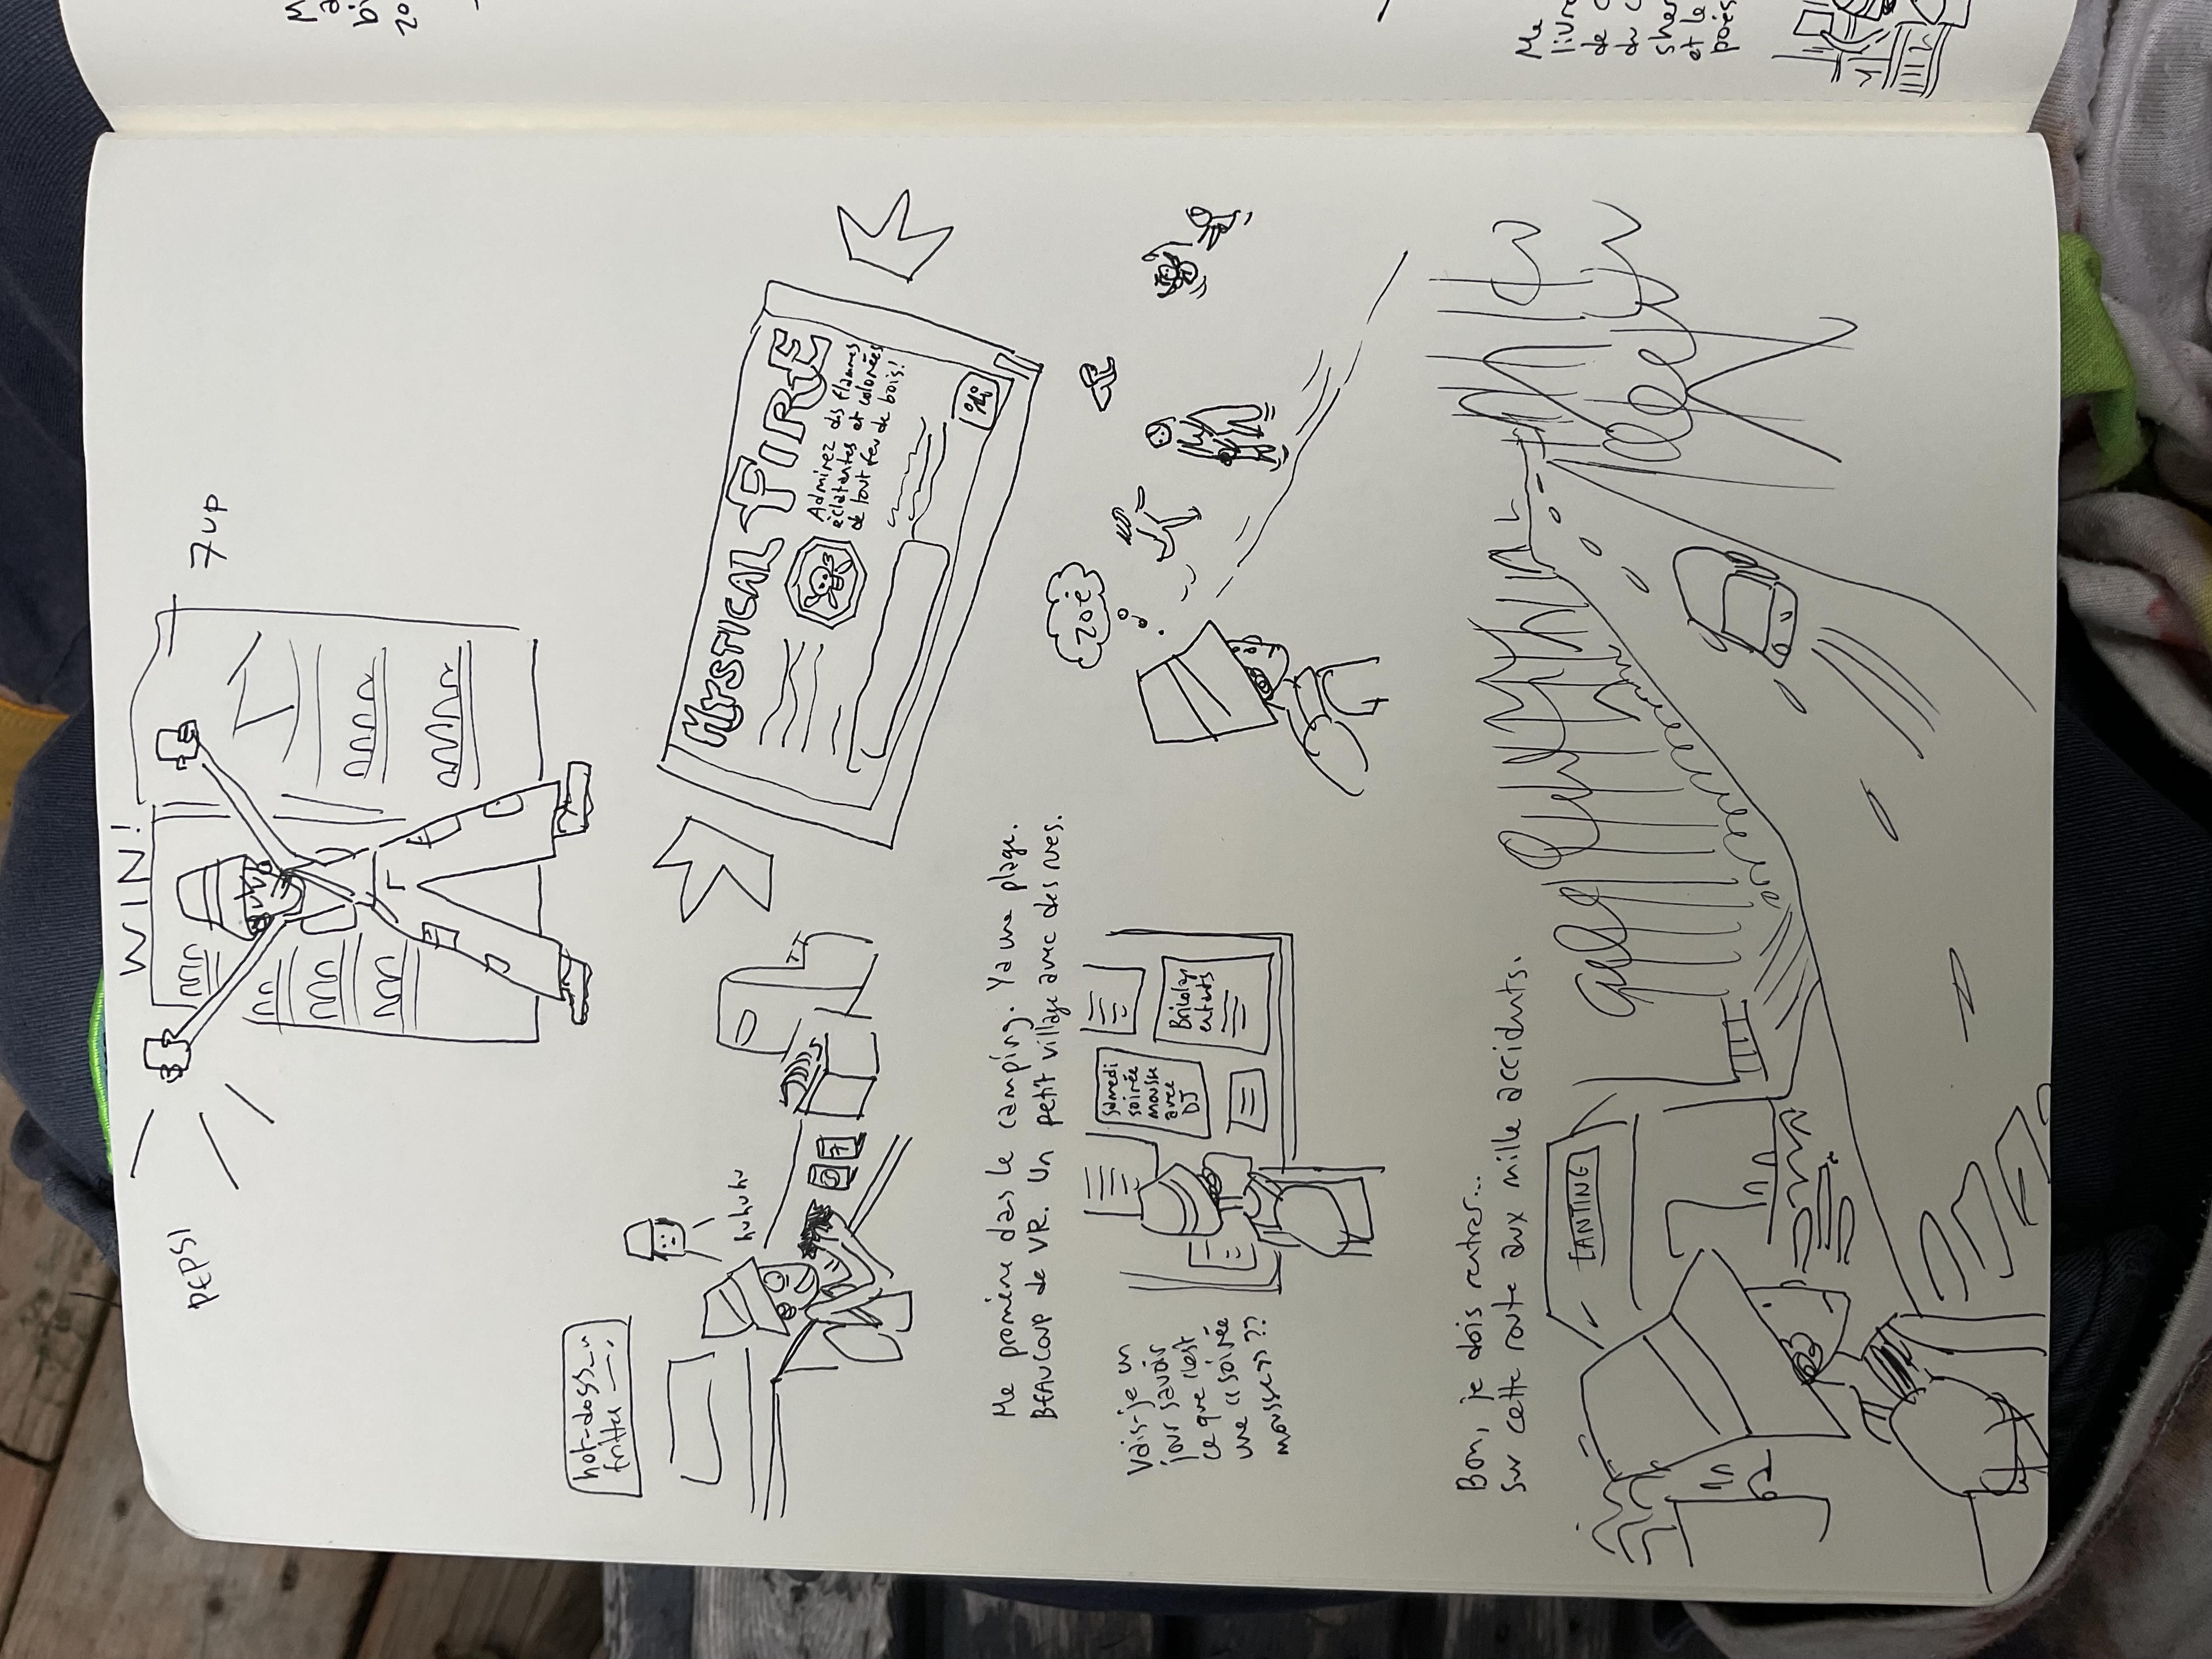 WIN!
PEPSI
7up
hot-dogs
huhuhu
MYSTICAL FIRE
Admirez des flammes
éclatantes et colorées
de tout feu de bois!
Me promène dans le camping. Y a une plage.
BEAUCOUP de VR. Un petit village avec des rues.
Vais-je un
jour savoir
ce que c'est
une
mousse??
samedi
soirée
mousse
avec
DJ
Bricolage
enfants
zoé
Bon, je dois rentrer...
sur cette route aux mille accidents.
CANTINE
Me
livre
de
du
et le